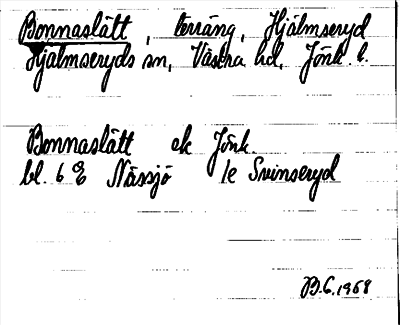 Bonnaslätt, terräng, Hjälmseryd
Hjälmseryds sn, Västra hd, Jönk. l.
Bonnaslätt ek Jönk.
bl. 6 E Nässjö 1e Svinseryd
B.G. 1968